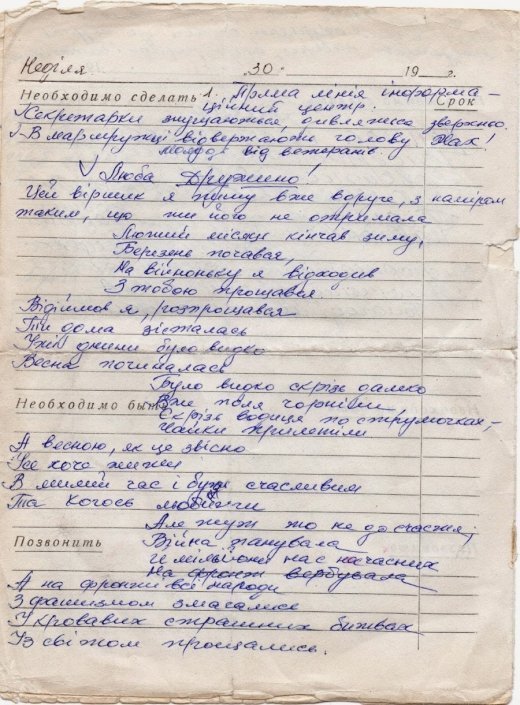 Неділя „30“ 19 г.
Необходимо сделать 1. Пряма лінія інформа-
ційний центр. Срок
Секретарки знущаються, дивляться зверхньо.
В маршрутці відвертають голову Жах!
молодь від ветеранів.
Люба Дружино!
Цей віршик я пишу вже вдруге, з наміром
таким, що ти його не отримала
Лютий місяць кінчав зиму,
Березень почавая,
На війноньку я відходив
З тобою прощався
Відійшов я, розпрощався
Ти дома зісталась
днини було видко
Весна починалась
Було видко скрізь далеко
Вже поля чорніли
Необходимо быть
Скрізь водиця по струмочках,
чайки прилетіли
А весною, як це звісно
Усе хоче жити
В милий час і бути счасливим
Та когось любити
Але тут то не до счастя;
Позвонить Війна панувала
й мільйони нас нечасних
На фронт вербувала
А на фронті всі народи
З фашизмом змагались
У кровавих страшних битвах
Із світом прощались.